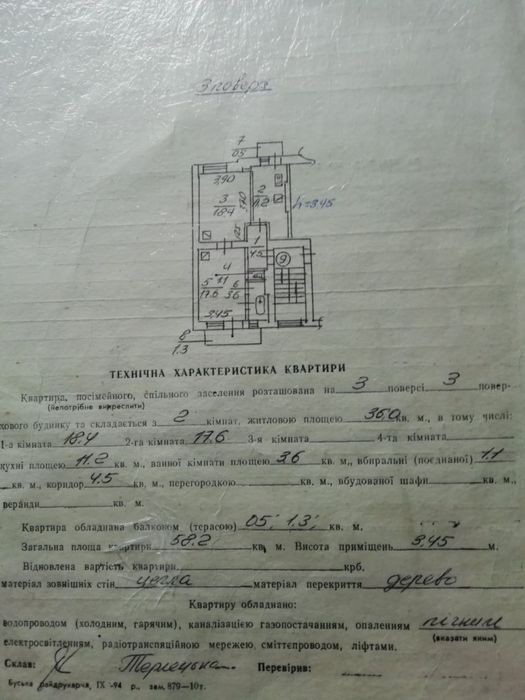 3 поверх
7
05
3,90
3
18.4
5,70
2
11.2
h=3,45
1
4.5
9
4
1.1
5
17.6
6
3.6
3,45
8
1.3
ТЕХНІЧНА ХАРАКТЕРИСТИКА КВАРТИРИ
Квартира, посімейного, спільного заселення розташована на 3 поверсі 3 повер-
(непотрібне викреслити)
хового будинку та складається з 2 кімнат, житловою площею 36.0 кв. м., в тому числі:
1-а кімната 18.4 2-га кімната 17.6 3-я кімната 4-та кімната
кухні площею 11.2 кв. м., ванної кімнати площею 3.6 кв. м., вбиральні (поєднаної) 1.1
кв. м., коридор 4.5 кв. м., перегородкою кв. м., вбудованої шафи кв. м.,
веранди кв. м.
Квартира обладнана балконом (терасою) 05; 1,3; кв. м.
Загальна площа квартири 58.2 кв. м. Висота приміщень 3,45 м.
Відновлена вартість квартири крб.
матеріал зовнішніх стін цегла матеріал перекриття дерево
Квартиру обладнано:
водопроводом (холодним, гарячим), каналізацією газопостачанням, опаленням пічним
(вказати яким)
електросвітленням, радіотрансляційною мережею, сміттєпроводом, ліфтами.
Склав: Перевірив:
Буська райдрукарча, ІХ -94 р., зам. 879—10т.